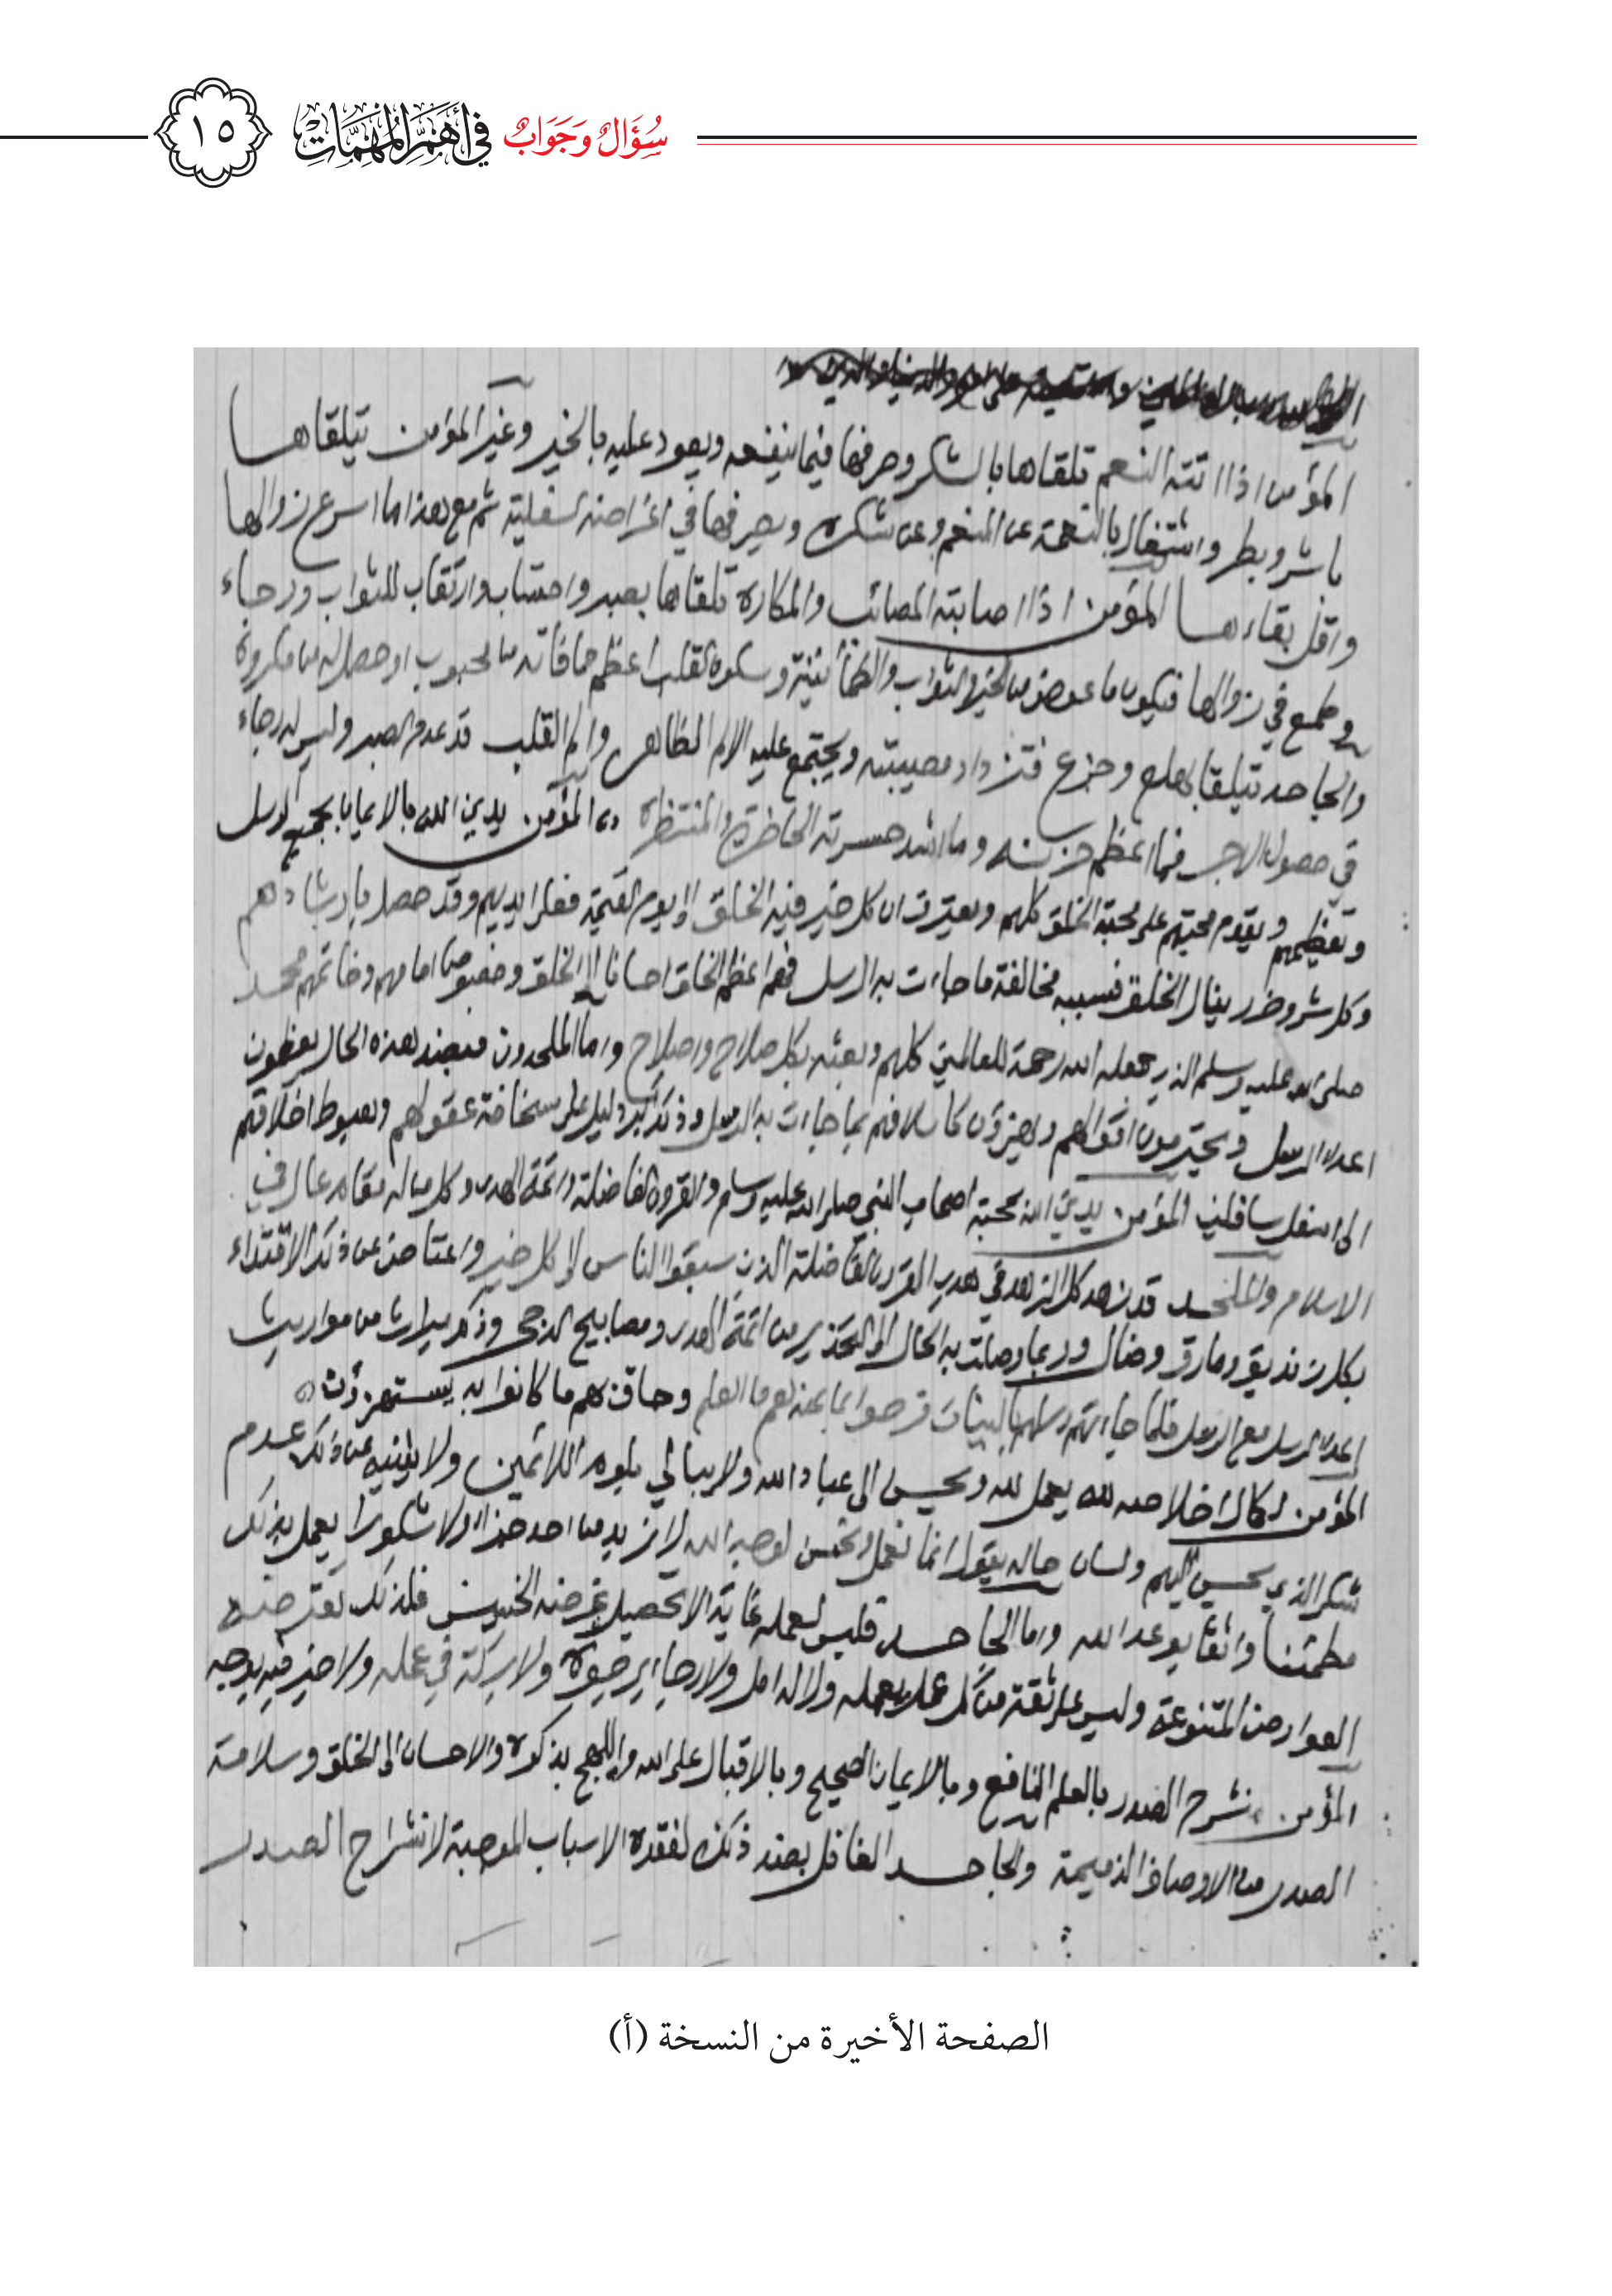 سُؤَالٌ وَجَوَابٌ فِي أَهَمِّ المُهِمَّاتِ
١٥
المؤمن اذا اتته النعم تلقاها بالشكر وصرفها فيما ينفعه ويعود عليه بالخير وغير المؤمن يتلقاها
باشر وبطر واشتغال بالنعمة عن المنعم وعن شكره ويصرفها في اغراضه السفلية ثم مع هذا ما اسرع زوالها
واقل بقاءها المؤمن اذا اصابته المصائب والمكاره تلقاها بصبر واحتساب وارتقاب للثواب ورجاء
وطمع في زوالها فيكون ما عوض من الخير والثواب والطمأنينة وسكون القلب اعظم مما فاته من محبوب او حصل له من مكروه
والجاحد يتلقاها بهلع وجزع فتزداد مصيبته ويجتمع عليه الالم الظاهر والم القلب قد عدم الصبر وليس له رجاء
في حصول الاجر فما اعظم حزنه وما اشد حسرته الحاضرة والمنتظرة المؤمن يدين الله بالايمان بجميع الرسل
وتعظيمهم ويقدم محبتهم على محبة الخلق كلهم ويعترف ان كل خير فيه الخلق الى يوم القيمة فعلى ايديهم وقد حصل بارشادهم
وكل شر وضرر ينال الخلق فسببه مخالفة ما جاءت به الرسل فهم اعظم الخلق احسانا الى الخلق وخصوصا امامهم وخاتمهم محمد
صلى الله عليه وسلم الذي جعله الله رحمة للعالمين كلهم وبعثه بكل صلاح واصلاح واما الملحدون فبضد هذه الحال يعظمون
اعداء الرسل ويحترمون اقوالهم ويهزؤن كاسلافهم بما جاءت به الرسل وذلك اكبر دليل على سخافة عقولهم وهبوط اخلاقهم
الى اسفل سافلين المؤمن يدين الله بمحبة اصحاب النبي صلى الله عليه وسلم والقرون الفاضلة وائمة الهدى وكل من له مقام عال في
الاسلام والملحد قد زهد كل الزهد في هدي القرون الفاضلة الذين سبقوا الناس الى كل خير واعتاض عن ذلك الاقتداء
بكل زنديق ومارق وضال وربما وصلت به الحال الى التحذير من ائمة الهدى ومصابيح الدجى وذلك ميراث من مواريث
اعداء الرسل مع الرسل فلما جاءتهم رسلهم بالبينات فرحوا بما عندهم من العلم وحاق بهم ما كانوا به يستهزؤن
المؤمن لكمال اخلاصه لله يعمل لله ويحسن الى عباد الله ولا يبالي بلوم اللائمين ولا يثنيه عن ذلك عدم
شكر الذي يحسن اليهم ولسان حاله يقول انما نعمل ونحسن لوجه الله لا نريد من احد جزاء ولا شكورا يعمل بذلك
مطمئنا واثقا بوعد الله واما الجاحد فليس لعمله غاية الا تحصيل غرضه الخسيس فلذلك تعترضه
العوارض المتنوعة وليس على ثقة من كل عمل يعمله ولا له امل ولا رجاء يرجوه ولا بركة في عمله ولا خير فيه بوجه
المؤمن منشرح الصدر بالعلم النافع وبالايمان الصحيح وبالاقبال على الله واللهج بذكره والاحسان الى الخلق وسلامة
الصدر من الاوصاف الذميمة والجاحد الغافل بضد ذلك لفقده الاسباب الموجبة لانشراح الصدر
الصفحة الأخيرة من النسخة (أ)